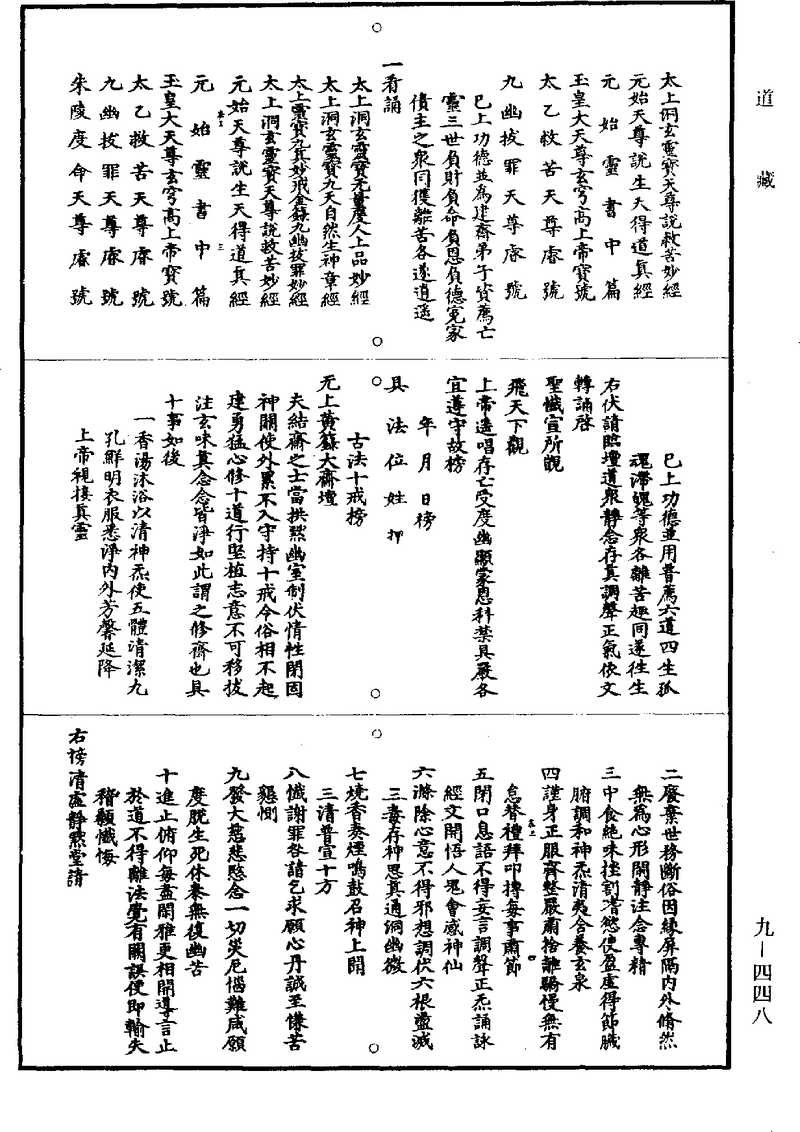 道藏
太上洞玄靈寶天尊說救苦妙經
元始天尊說生天得道真經
元始靈書中篇
玉皇大天尊玄穹高上帝寶號
太乙救苦天尊睿號
九幽拔罪天尊睿號
已上功德並為建齋弟子資薦亡
靈三世負財負命負恩負德冤家
債主之衆同獲離苦各遂逍遥
一看誦
太上洞玄靈寶无量度人上品妙經
太上洞玄靈寶九天自然生神章經
太上靈寶九真妙戒金籙九幽拔罪妙經
太上洞玄靈寶天尊說救苦妙經
元始天尊說生天得道真經
元始靈書中篇
玉皇大天尊玄穹高上帝寶號
太乙救苦天尊睿號
九幽拔罪天尊睿號
朱陵度命天尊睿號
已上功德並用普薦六道四生孤
魂滯魄等衆各離苦趣同遂往生
右伏請臨壇道衆靜念存真調聲正氣依文
轉誦啓
聖懺宣所覬
飛天下觀
上帝遥唱存亡受度幽顯蒙恩科禁具嚴各
宜遵守故榜
年月日榜
具法位姓押
古法十戒榜
无上黃籙大齋壇
夫結齋之士當拱默幽室制伏情性閉固
神關使外累不入守持十戒令俗相不起
建勇猛心修十道行堅植志意不可移拔
注玄味真念念皆淨如此謂之修齋也具
十事如後
一香湯沐浴以清神炁使五體清潔九
孔鮮明衣服悉淨内外芳馨延降
上帝視接真靈
二廢棄世務斷俗因緣屏隔内外脩然
無為心形閑靜注念專精
三中食絶味挫割嗜慾使盈虛得節臟
腑調和神炁清夷含養玄泉
四謹身正服齊整嚴肅捨離驕慢無有
怠替禮拜叩摶每事肅節
五閉口息語不得妄言調聲正炁誦詠
經文開悟人鬼會感神仙
六滌除心意不得邪想調伏六根盡滅
三毒存神思真通洞幽微
七燒香奏煙鳴鼓召神上聞
三清普宣十方
八懺謝罪咎請乞求願心丹誠至慊苦
懇惻
九發大慈悲愍念一切災厄惱難咸願
度脫生死休泰無復幽苦
十進止俯仰每盡閑雅更相開導言止
於道不得離法覺有闕誤便即輸失
稽顙懺悔
右榜清虛靜默堂請
九—四四八